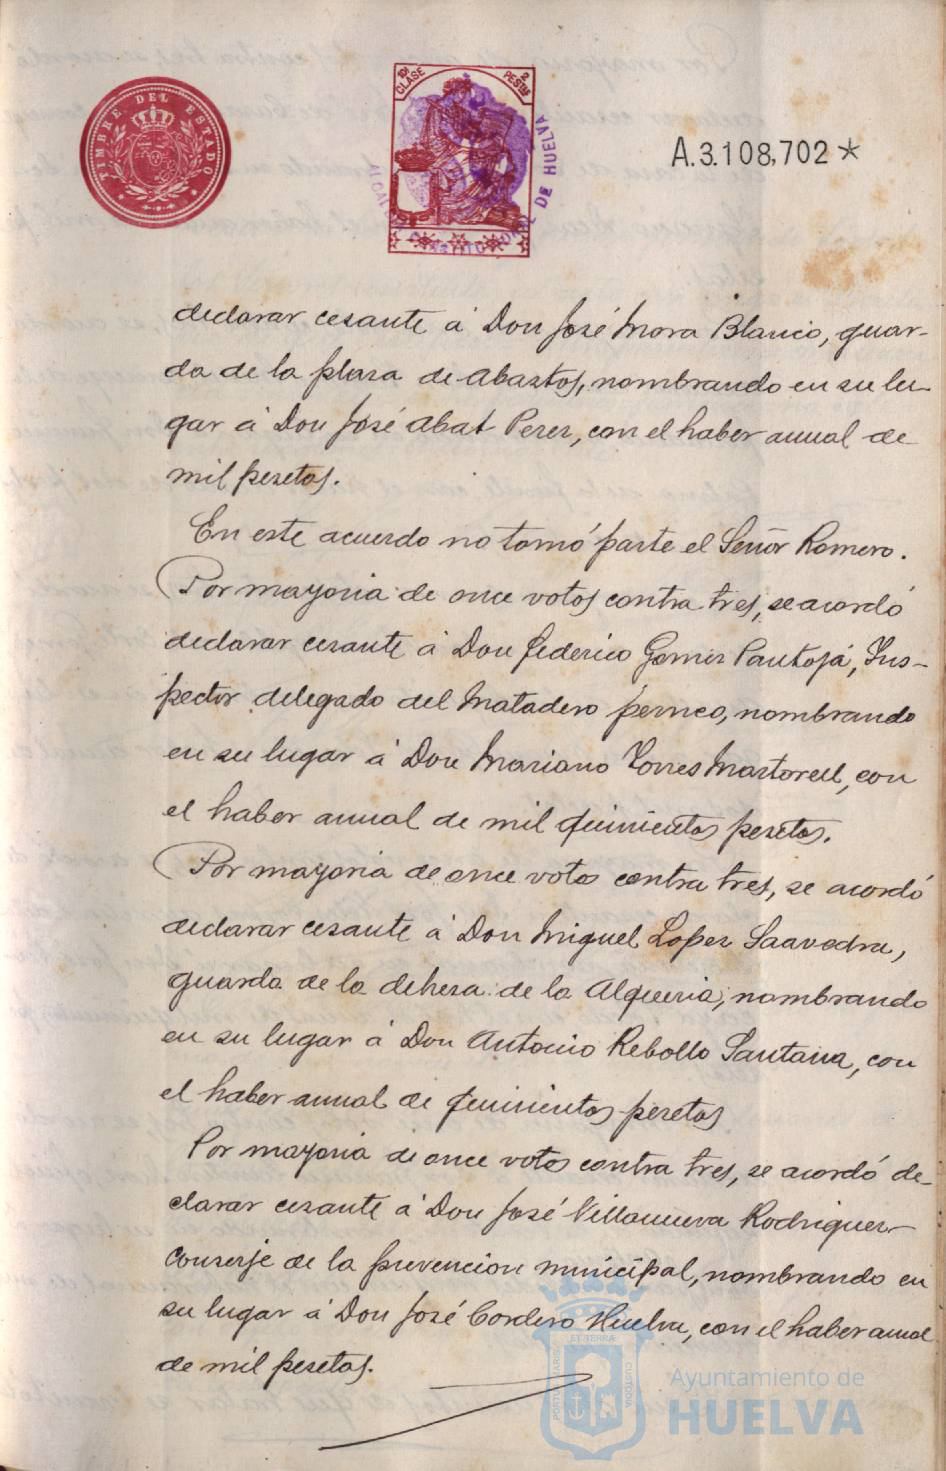 TIMBRE DEL ESTADO
10ª CLASE
2 PESTAS
DE HUELVA
A.3.108,702*
declarar cesante á Don José Mora Blanco, guar-
da de la plaza de Abastos, nombrando en su lu-
gar á Don José Abat Perez, con el haber anual de
mil pesetas.
En este acuerdo no tomó parte el Señor Romero.
Por mayoria de once votos contra tres, se acordó
declarar cesante á Don Federico Gomez Pantoja, Ins-
pector delegado del Matadero perneo, nombrando
en su lugar á Don Mariano Torres Martorell, con
el haber anual de mil quinientas pesetas.
Por mayoria de once votos contra tres, se acordó
declarar cesante á Don Miguel Lopez Saavedra,
guarda de la dehesa de la Alqueria, nombrando
en su lugar á Don Antonio Rebollo Santana, con
el haber anual de quinientas pesetas
Por mayoria de once votos contra tres, se acordó de-
clarar cesante á Don José Villanueva Rodriguez
Conserje de la prevencion municipal, nombrando en
su lugar á Don José Cordero Huelva, con el haber anual
de mil pesetas.
PORTUS MARIS ET TERRAE CUSTODIA
Ayuntamiento de
HUELVA